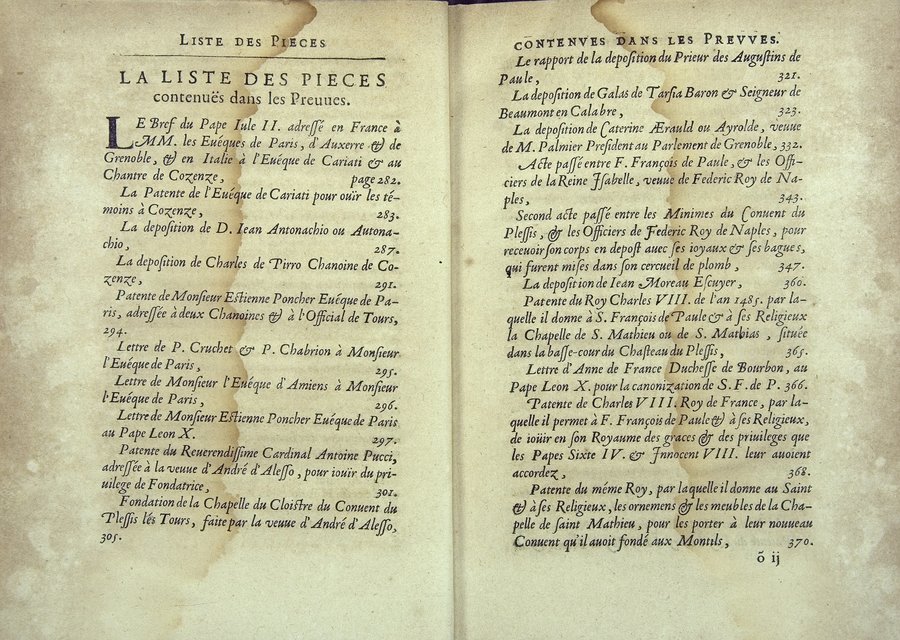 LISTE DES PIECES
LA LISTE DES PIECES
contenuës dans les Preuues.
LE Bref du Pape Iule II. adressé en France à
MM. les Euéques de Paris, d'Auxerre & de
Grenoble, & en Italie à l'Euéque de Cariati & au
Chantre de Cozenze, page 282.
La Patente de l'Euéque de Cariati pour ouïr les té-
moins à Cozenze, 283.
La deposition de D. Iean Antonachio ou Autona-
chio, 287.
La deposition de Charles de Pirro Chanoine de Co-
zenze, 291.
Patente de Monsieur Estienne Poncher Euéque de Pa-
ris, adressée à deux Chanoines & à l'Official de Tours,
294.
Lettre de P. Cruchet & P. Chabrion à Monsieur
l'Euéque de Paris, 295.
Lettre de Monsieur l'Euéque d'Amiens à Monsieur
l'Euéque de Paris, 296.
Lettre de Monsieur Estienne Poncher Euéque de Paris
au Pape Leon X. 297.
Patente du Reuerendissime Cardinal Antoine Pucci,
adressée à la veuue d'André d'Alesso, pour iouir du pri-
uilege de Fondatrice, 301.
Fondation de la Chapelle du Cloistre du Conuent du
Plessis lés Tours, faite par la veuue d'André d'Alesso,
305.
CONTENVES DANS LES PREVVES.
Le rapport de la deposition du Prieur des Augustins de
Paule, 321.
La deposition de Galas de Tarsia Baron & Seigneur de
Beaumont en Calabre, 323.
La deposition de Caterine Ærauld ou Ayrolde, veuue
de M. Palmier President au Parlement de Grenoble, 332.
Acte passé entre F. François de Paule, & les Offi-
ciers de la Reine Isabelle, veuue de Federic Roy de Na-
ples, 343.
Second acte passé entre les Minimes du Conuent du
Plessis, & les Officiers de Federic Roy de Naples, pour
receuoir son corps en depost auec ses ioyaux & ses bagues,
qui furent mises dans son cercueil de plomb, 347.
La deposition de Iean Moreau Escuyer, 360.
Patente du Roy Charles VIII. de l'an 1485. par la-
quelle il donne à S. François de Paule & à ses Religieux
la Chapelle de S. Mathieu ou de S. Mathias, située
dans la basse-cour du Chasteau du Plessis, 365.
Lettre d'Anne de France Duchesse de Bourbon, au
Pape Leon X. pour la canonization de S. F. de P. 366.
Patente de Charles VIII. Roy de France, par la-
quelle il permet à F. François de Paule & à ses Religieux,
de ioüir en son Royaume des graces & des priuileges que
les Papes Sixte IV. & Innocent VIII. leur auoient
accordez, 368.
Patente du méme Roy, par laquelle il donne au Saint
& à ses Religieux, les ornemens & les meubles de la Cha-
pelle de saint Mathieu, pour les porter à leur nouueau
Conuent qu'il auoit fondé aux Montils, 370.
õ ij